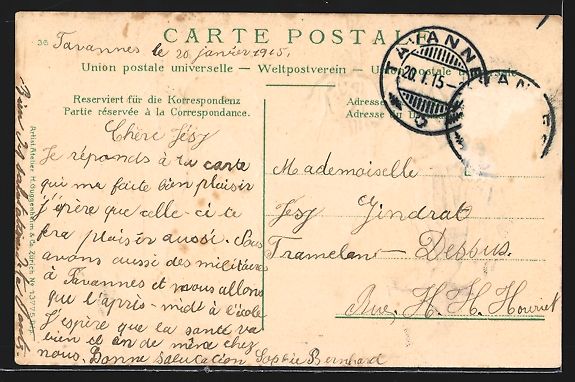 36
CARTE POSTALE
Tavannes le 20 janvier 1915.
Union postale universelle — Weltpostverein — Union postale universelle
TAVANNES
20.I.15
TAVANNES
Reserviert für die Korrespondenz
Partie réservée à la Correspondance.
Adresse
Adresse du
Chère Jésy
Je réponds à ta carte
qui ma faite bien plaisir
j'éspère que celle-ci te
fera plaisir aussi. Nous
avons aussi des militaires
à Tavannes et nous allons
que l'apris-midi à l'école
J'espère que la santé va
bien et on de même chez
nous, Bonne salutation Sophie Bernhard
Mademoiselle
Jésy Gindrat
Tramelan-Dessus.
Rue, H. H. Houriet
Artist. Atelier H. Guggenheim & Co. Zürich No.